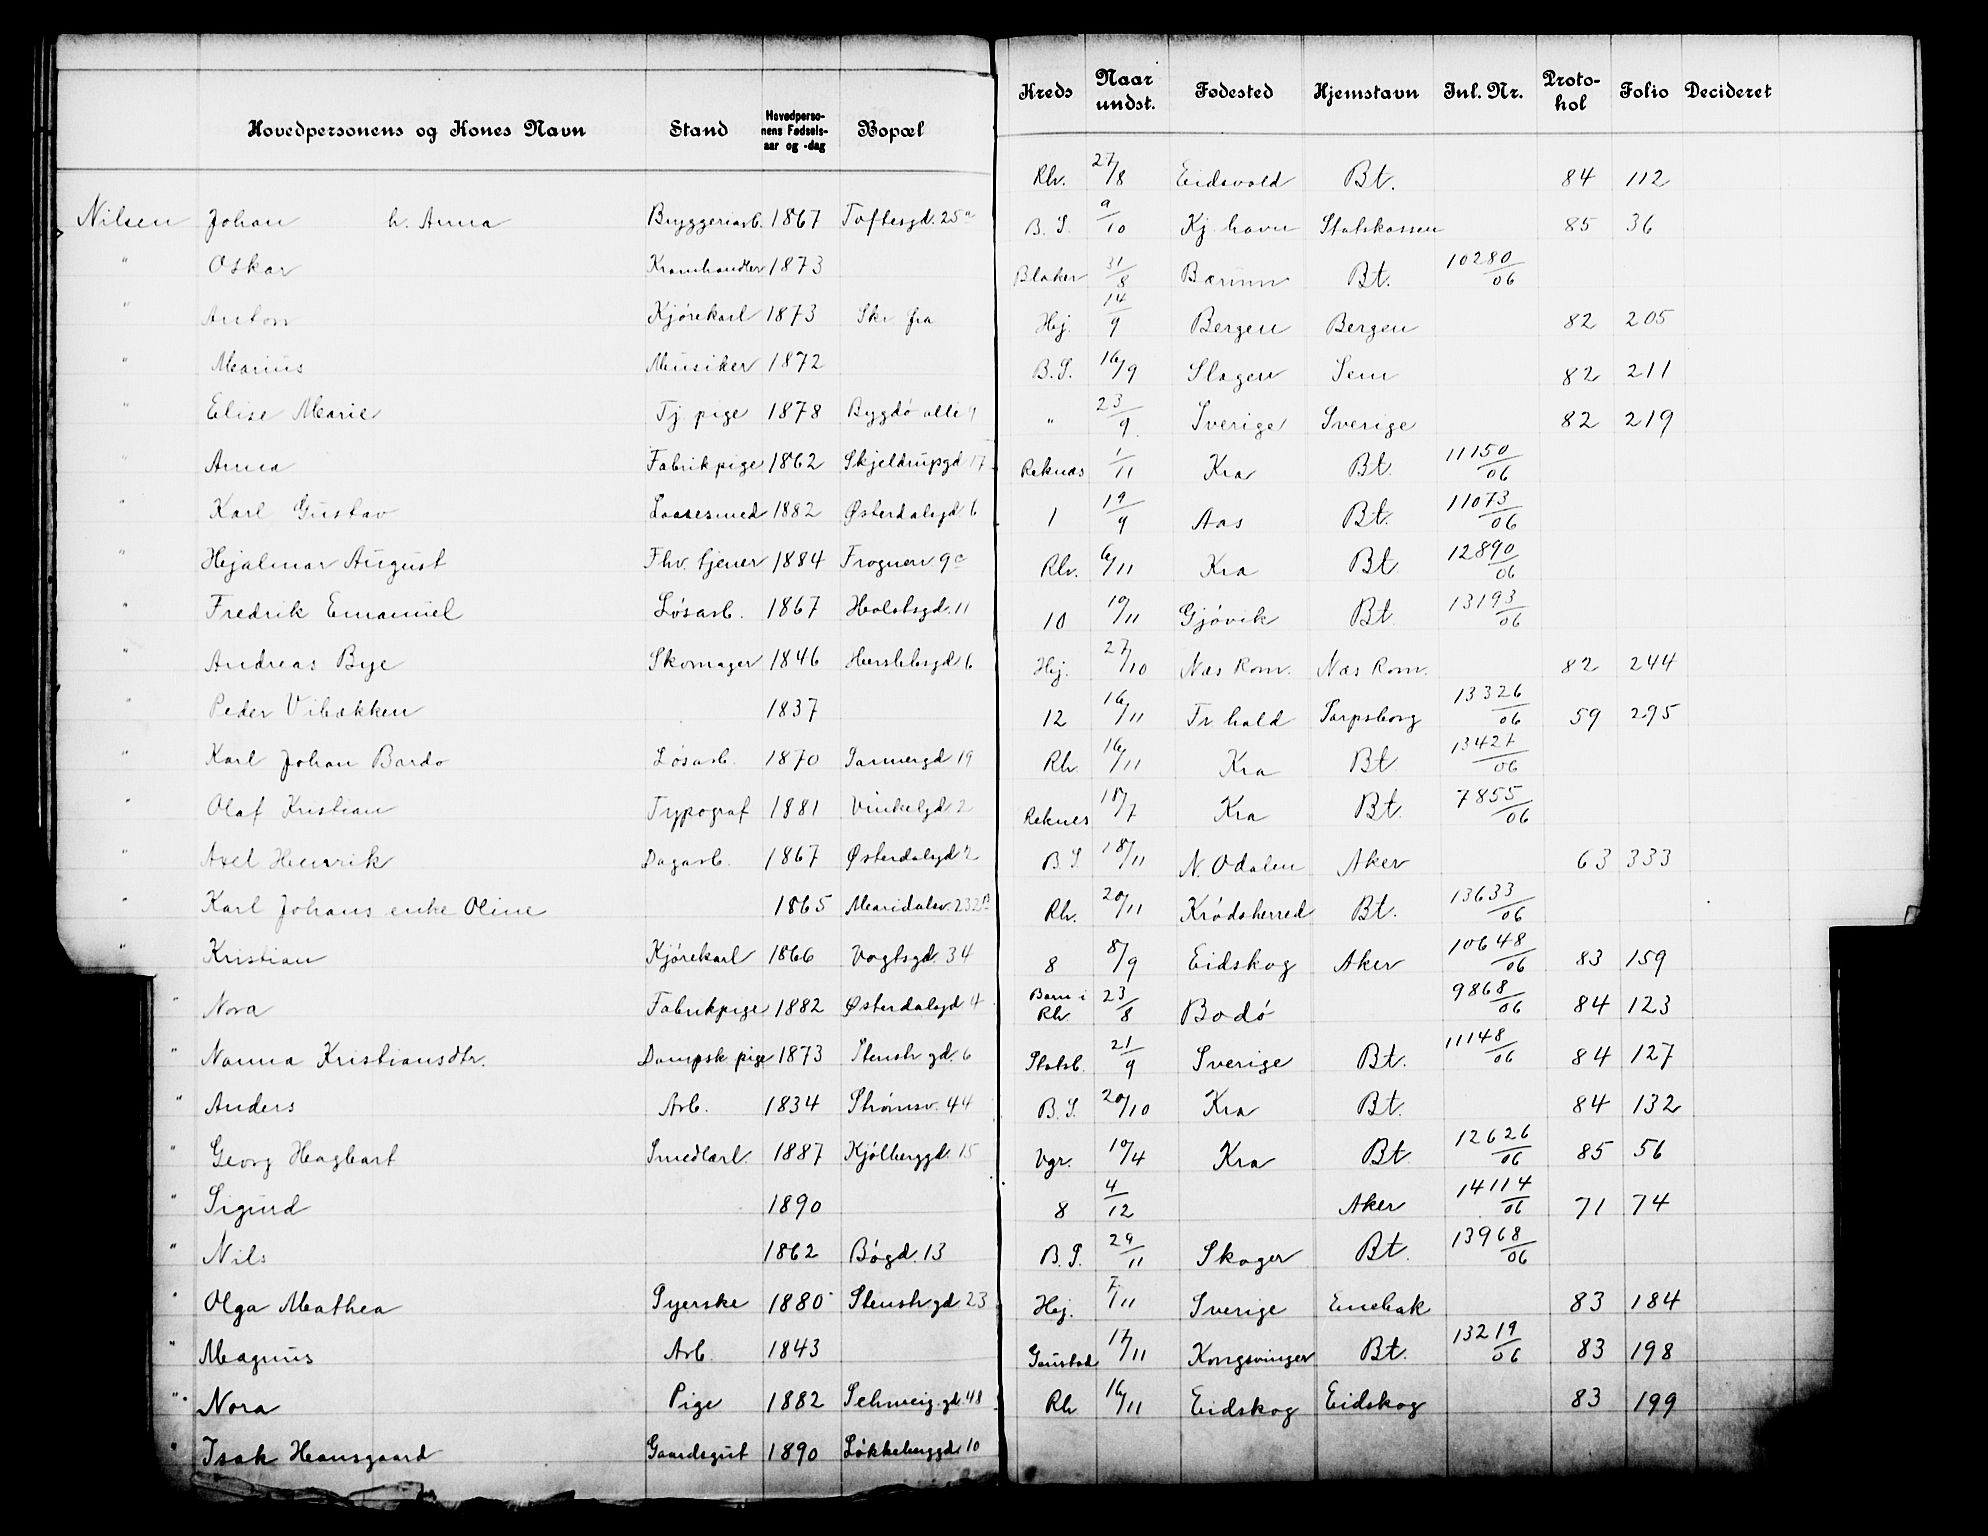 Hovedpersonens og Kones Navn Stand Hovedpersonens Fødselsaar og -dag Bopæl Kreds Naar undst. Fødested Hjemstavn Inl. Nr. Protokol Folio Decideret
Rh. 27/8 Eidsvold Bt. 84 112
Nilsen Johan h. Anna Bryggeriarb. 1867 Toftesgd. 25a
B. S. 9/10 Kj.havn Statskassen 85 36
" Oskar Kramhandler 1873
Blaker 31/8 Bærum Bt. 10280/06
" Anton Kjørekarl 1873 Skr fra
Hej. 14/9 Bergen Bergen 82 205
" Marius Musiker 1872
B. S. 16/9 Slagen Sem 82 211
" Elise Marie Tj. pige 1878 Bygdö alle 9
" 23/9 Sverige Sverige 82 219
" Anna Fabrikpige 1862 Skjeldrupgd 17
Reknæs 1/11 Kra Bt. 11150/06
" Karl Gustav Laasesmed 1882 Østerdalsgd. 6
1 19/9 Aas Bt. 11073/06
" Hjalmar August Fhv. tjener 1884 Frognerv. 9c
Rh. 6/11 Kra Bt. 12890/06
" Fredrik Emanuel Løsarb. 1867 Holstsgd. 11
10 10/11 Gjøvik Bt. 13193/06
" Andreas Bye Skomager 1846 Herslebsgd. 6
Hej. 27/10 Næs Rom. Næs Rom. 82 244
" Peder Vibækken 1837
12 16/11 Fr.hald Sarpsborg 13326/06 59 295
" Karl Johan Bardo Løsarb. 1870 Sannergd 19
Rh. 16/11 Kra Bt. 13427/06
" Olaf Kristian Typograf 1881 Vinkelgd 2
Reknes 18/7 Kra Bt. 7855/06
" Axel Henrik Dagarb. 1867 Østerdalsgd 2
B S. 18/11 N. Odalen Aker 63 333
" Karl Johans enke Oline 1865 Maridalsv. 232
Rh. 20/11 Krødsherred Bt. 13633/06
" Kristian Kjørekarl 1866 Vogtsgd. 34
8 8/9 Eidskog Aker 10648/06 83 159
" Nora Fabrikpige 1882 Østerdalsgd 4
Barn i Rh. 23/8 Bodø 9868/06 84 123
" Nanna Kristiansdtr. Dampsk. pige 1873 Stenstr gd. 6
Statsb. 21/9 Sverige Bt. 11148/06 84 127
" Anders Arb. 1834 Strømsv. 44
B. S. 20/10 Kra Bt. 84 132
" Georg Hagbart Smedlærl. 1887 Kjølberggd. 15
Vgr. 10/4 Kra Bt. 12626/06 85 56
" Sigurd 1890
8 4/12 Aker 14114/06 71 74
" Nils 1862 Bøgd. 13
B. S. 29/11 Skoger Bt. 13968/06
" Olga Mathea Syerske 1880 Stenstr gd 23
Hej. 7/11 Sverige Enebak 83 184
" Magnus Arb. 1843
Gaustad 17/11 Kongsvinger Bt. 13219/06 83 198
" Nora Pige 1882 Schweig.gd. 48
Rh 16/11 Eidskog Eidskog 83 199
" Isak Hansgaard Gaardsgut 1890 Løkkeberggd. 10